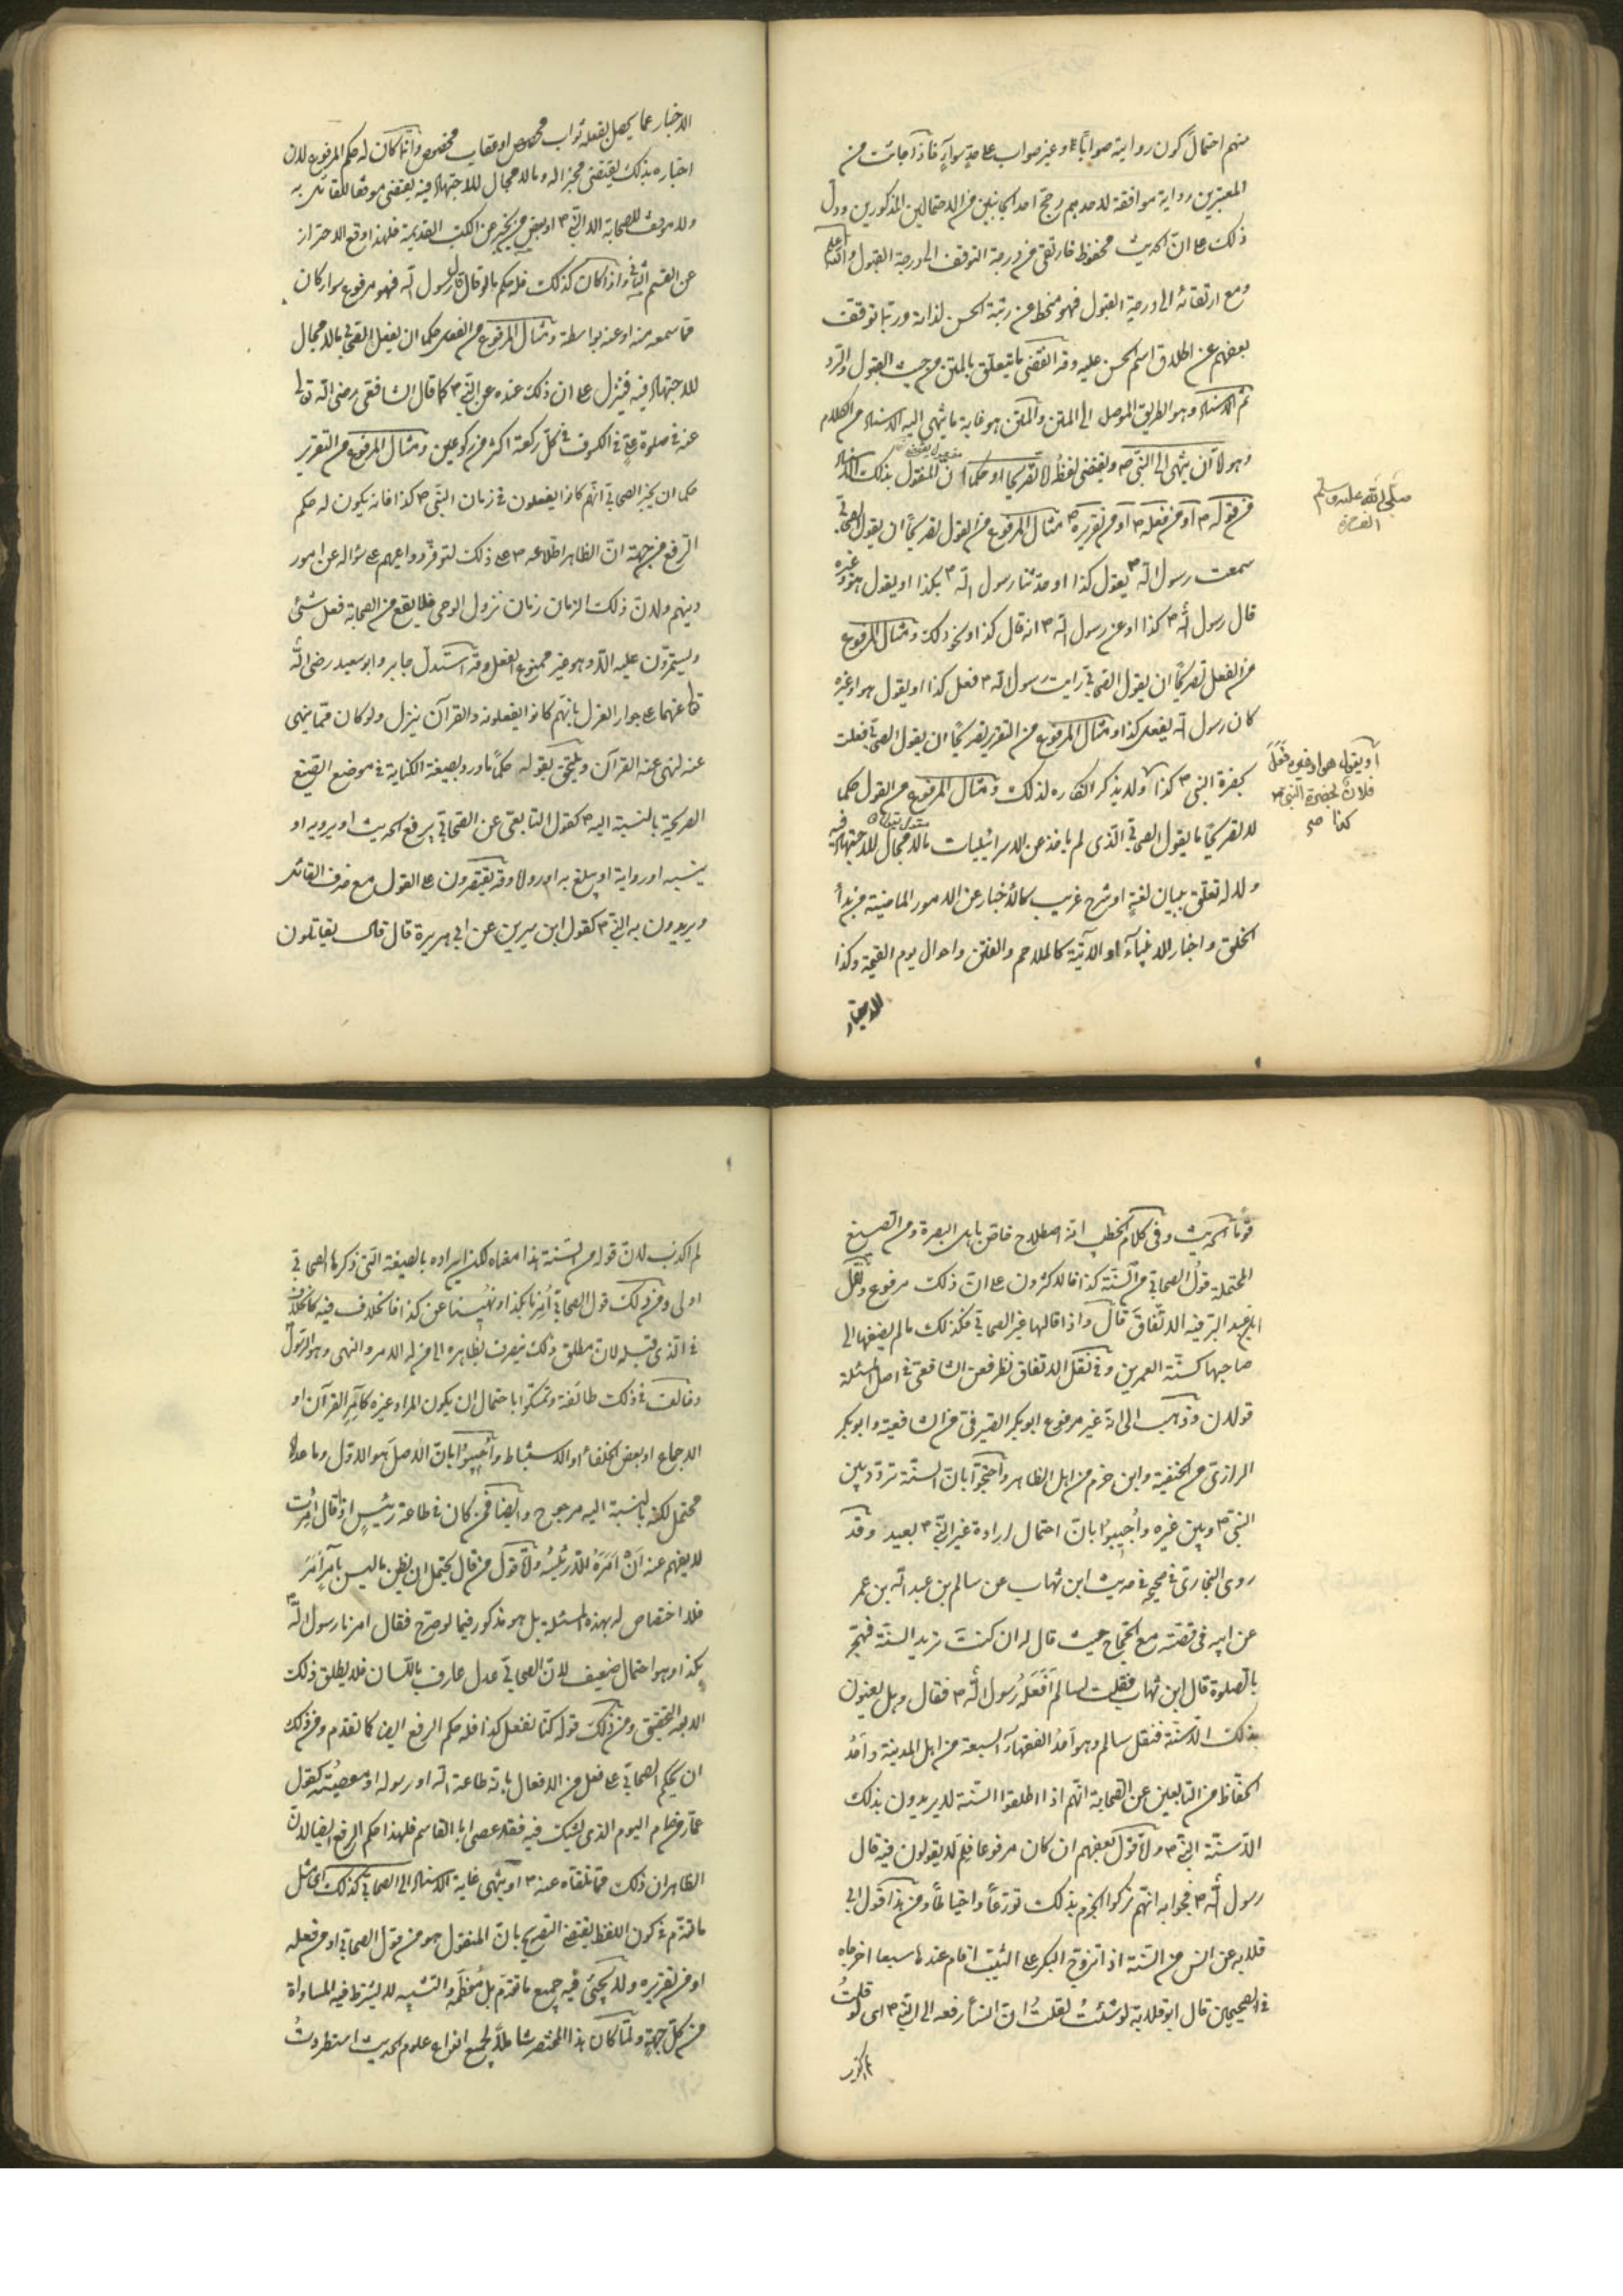 منهم احتمال كون رواية صوابا او غير صواب على حد سواء فاذا جائت من
المعتبرين رواية موافقة لاحدهم رجح احد الجانبين من الاحتمالين المذكورين ودل
ذلك على ان الحديث محفوظ فارتقى من درجة التوقف الى درجة القبول والله اعلم
ومع ارتقائه الى درجة القبول فهو منحط عن رتبة الحسن لذاته وربما توقف
بعضهم عن اطلاق اسم الحسن عليه وقد انقضى ما يتعلق بالمتن من حيث القبول والرد
ثم الاسناد وهو الطريق الموصل الى المتن والمتن هو غاية ما ينتهي اليه الاسناد من الكلام
وهو اما ان ينتهى الى النبى ص ويقتضى لفظه اما تصريحا او حكما ان المنقول بذلك الاسناد
من قوله ص او من فعله ص او من تقريره ص مثال المرفوع من القول تصريحا ان يقول الصحابى
سمعت رسول الله ص يقول كذا او حدثنا رسول الله ص بكذا او يقول هو او غيره
قال رسول الله ص كذا او عن رسول الله ص انه قال كذا او نحو ذلك ومثال المرفوع
من الفعل تصريحا ان يقول الصحابى رايت رسول الله ص فعل كذا او يقول هو او غيره
كان رسول الله يفعل كذا ومثال المرفوع من التقرير تصريحا ان يقول الصحابى فعلت
بحضرة النبى ص كذا ولا يذكر انكاره لذلك ومثال المرفوع من القول حكما
لا تصريحا ما يقول الصحابى الذى لم ياخذ عن الاسرائيليات ما لا مجال للاجتهاد فيه
ولا له تعلق ببيان لغة او شرح غريب كالاخبار عن الامور الماضية من بدأ
الخلق واخبار الانبياء او الآتية كالملاحم والفتن واحوال يوم القيمة وكذا
الاخبار
صلى الله عليه وسلم
او يقول هو او غيره فعل
فلان بحضرة النبى ص
كذا صح
الاخبار عما يحصل بفعله ثواب مخصوص او عقاب مخصوص وانما كان له حكم المرفوع لان
اخباره بذلك يقتضى مخبرا له وما لا مجال للاجتهاد فيه يقتضى موقفا للقائل به
ولا موقف للصحابة الا النبى ص او بعض من يخبر عن الكتب القديمة فلهذا وقع الاحتراز
عن القسم الثانى واذا كان كذلك فله حكم ما لو قال قال رسول الله فهو مرفوع سواء كان
مما سمعه منه او عنه بواسطة ومثال المرفوع من الفعل حكما ان يفعل الصحابى ما لا مجال
للاجتهاد فيه فينزل على ان ذلك عنده عن النبى ص كما قال الشافعى رضى الله تعالى
عنه فى صلوة على فى الكسوف فى كل ركعة اكثر من ركوعين ومثال المرفوع من التقرير
حكما ان يخبر الصحابى انهم كانوا يفعلون فى زمان النبى ص كذا فانه يكون له حكم
الرفع من جهة ان الظاهر اطلاعه ص على ذلك لتوفر دواعيهم على سؤاله عن امور
دينهم ولان ذلك الزمان زمان نزول الوحى فلا يقع من الصحابة فعل شئ
ويستمرون عليه الا وهو غير ممنوع الفعل وقد استدل جابر وابو سعيد رضى الله
تعالى عنهما على جواز العزل بانهم كانوا يفعلونه والقرآن ينزل ولو كان مما ينهى
عنه لنهى عنه القرآن ويلتحق بقوله حكما ما ورد بصيغة الكناية فى موضع الصيغ
الصريحة بالنسبة اليه ص كقول التابعى عن الصحابى يرفع الحديث او يرويه او
ينميه او رواية او يبلغ به او رواه وقد يقتصرون على القول مع حذف القائل
ويريدون به النبى ص كقول ابن سيرين عن ابى هريرة قال قال يقاتلون
قوما الحديث وفى كلام الخطيب انه اصطلاح خاص باهل البصرة ومن الصيغ
المحتملة قول الصحابى من السنة كذا فالاكثرون على ان ذلك مرفوع ونقل
ابن عبد البر فيه الاتفاق قال واذا قالها غير الصحابى فكذلك ما لم يضفها الى
صاحبها كسنة العمرين وفى نقل الاتفاق نظر فعن الشافعى فى اصل المسئلة
قولان وذهب الى انه غير مرفوع ابو بكر الصيرفى من الشافعية وابو بكر
الرازى من الحنفية وابن حزم من اهل الظاهر واحتجوا بان السنة تردد بين
النبى ص وبين غيره واجيبوا بان احتمال ارادة غير النبى ص بعيد وقد
روى البخارى فى صحيحه فى حديث ابن شهاب عن سالم بن عبد الله بن عمر
عن ابيه فى قصته مع الحجاج حيث قال له ان كنت تريد السنة فهجر
بالصلوة قال ابن شهاب فقلت لسالم أفعله رسول الله ص فقال وهل يعنون
بذلك الا سنته فنقل سالم وهو احد الفقهاء السبعة من اهل المدينة واحد
الحفاظ من التابعين عن الصحابة انهم اذا اطلقوا السنة لا يريدون بذلك
الا سنة النبى ص واما قول بعضهم ان كان مرفوعا فلم لا يقولون فيه قال
رسول الله ص فجوابه انهم تركوا الجزم بذلك تورعا واحتياطا ومن هذا قول ابى
قلابه عن انس من السنة اذا تزوج البكر على الثيب اقام عندها سبعا اخرجاه
فى الصحيحين قال ابو قلابة لو شئت لقلت ان انسا رفعه الى النبى ص اى لو قلت
لم اكذب
لم اكذب لان قوله من السنة هذا معناه لكن ايراده بالصيغة التى ذكرها الصحابى
اولى ومن ذلك قول الصحابى أمرنا بكذا او نهينا عن كذا فالخلاف فيه كالخلاف
فى الذى قبله لان مطلق ذلك ينصرف بظاهره الى من له الامر والنهى وهو الرسول
وخالف فى ذلك طائفة وتمسكوا باحتمال ان يكون المراد غيره كامر القرآن او
الاجماع او بعض الخلفاء او الاستنباط واجيبوا بان الاصل هو الاول وما عداه
محتمل لكنه بالنسبة اليه مرجوح وايضا فمن كان فى طاعة رئيس اذا قال أمرت
لا يفهم عنه ان آمره الا رئيسه واما قول من قال يحتمل ان يظن ما ليس بامر امرا
فلا اختصاص له بهذه المسئلة بل هو مذكور فيما لو صرح فقال امرنا رسول الله ص
بكذا وهو احتمال ضعيف لان الصحابى عدل عارف باللسان فلا يطلق ذلك
الا بعد التحقيق ومن ذلك قوله كنا نفعل كذا فله حكم الرفع ايضا كما تقدم ومن ذلك
ان يحكم الصحابى على فعل من الافعال بانه طاعة الله او رسوله او معصية كقول
عمار من صام اليوم الذى يشك فيه فقد عصى ابا القاسم فلهذا حكم الرفع ايضا لان
الظاهر ان ذلك مما تلقاه عنه ص او ينتهى غاية الاسناد الى الصحابى كذلك اى مثل
ما تقدم فى كون اللفظ يقتضى التصريح بان المنقول هو من قول الصحابى او من فعله
او من تقريره ولا يجئ فيه جميع ما تقدم بل معظمه والتشبيه لا يشترط فيه المساواة
من كل جهة ولما كان هذا المختصر شاملا لجميع انواع علوم الحديث استطردت